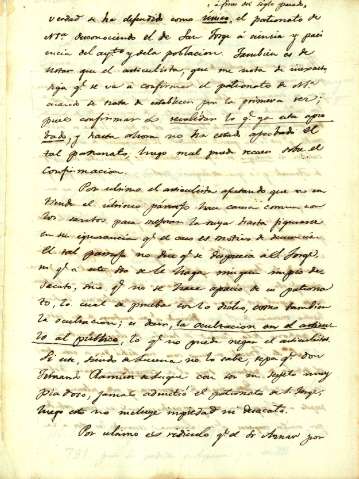 à fines del siglo pasado,
verdad se ha defendido como único, el patronato de
Nª. desconociendo el de San Jorge á ciencia y paci
encia del aytº y de la poblacion. Tambien es de
notar que el articulista, que me nota de
diga qe. se va a confirmar el patronato de Nª
cuando se trata de establecer por la primera vez;
pues confirmar es revalidar lo qe. ya esta apro
bado, y hasta ahora no ha estado aprobado el
tal patronato, luego mal puede recaer sobre el
confirmacion.
Por ultimo el articulista afectando que no en
tiende el ultimo párrafo hace causa comun con
los santos para mejorar la suya hasta figurarse
en su qe. el caso es motivo de
El tal párrafo no dice qe. se desprecia á S. Jorge,
ni qe. a este sto. se le haga ningun impio des
acato, sino qe. no se hace aprecio de su patrona
to, lo cual se prueba con lo dicho, como tambien
la ocultacion; es decir, la ocultacion en el
to al público, lo qe. no puede negar el articulista.
Si este, siendo de Lucena no lo sabe, sepa qe. don
Fernando Ramirez de Luque con ser un sujeto muy
piadoso, jamas admitió el patronato de S. Jorge,
luego esto no incluye impiedad ni desacato.
Por ultimo es ridiculo qe. el Sr. Aznar por